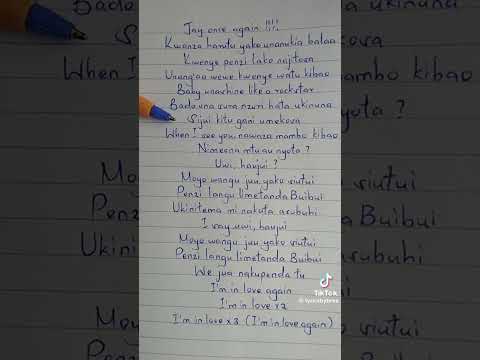 Jay once again !!!
Kwanza harufu yako unanukia balaa
Kwenye penzi lako najitosa
Unang'aa wewe kwenye watu kibao
Baby unashine like a rockstar
Bado una sura nzuri hata ukinuna
Sijui kitu gani umekosa
When I see you, nawaza mambo kibao
Nimeona mtu au nyota ?
Uwi, haujui ?
Moyo wangu juu yako siutui
Penzi langu limetanda Buibui
Ukinitema mi nakufa asubuhi
I say uwi, haujui
Moyo wangu juu yako siutui
Penzi langu limetanda Buibui
We jua nakupenda tu
I'm in love again
I'm in love x2
I'm in love x3 (I'm in love again)
TikTok